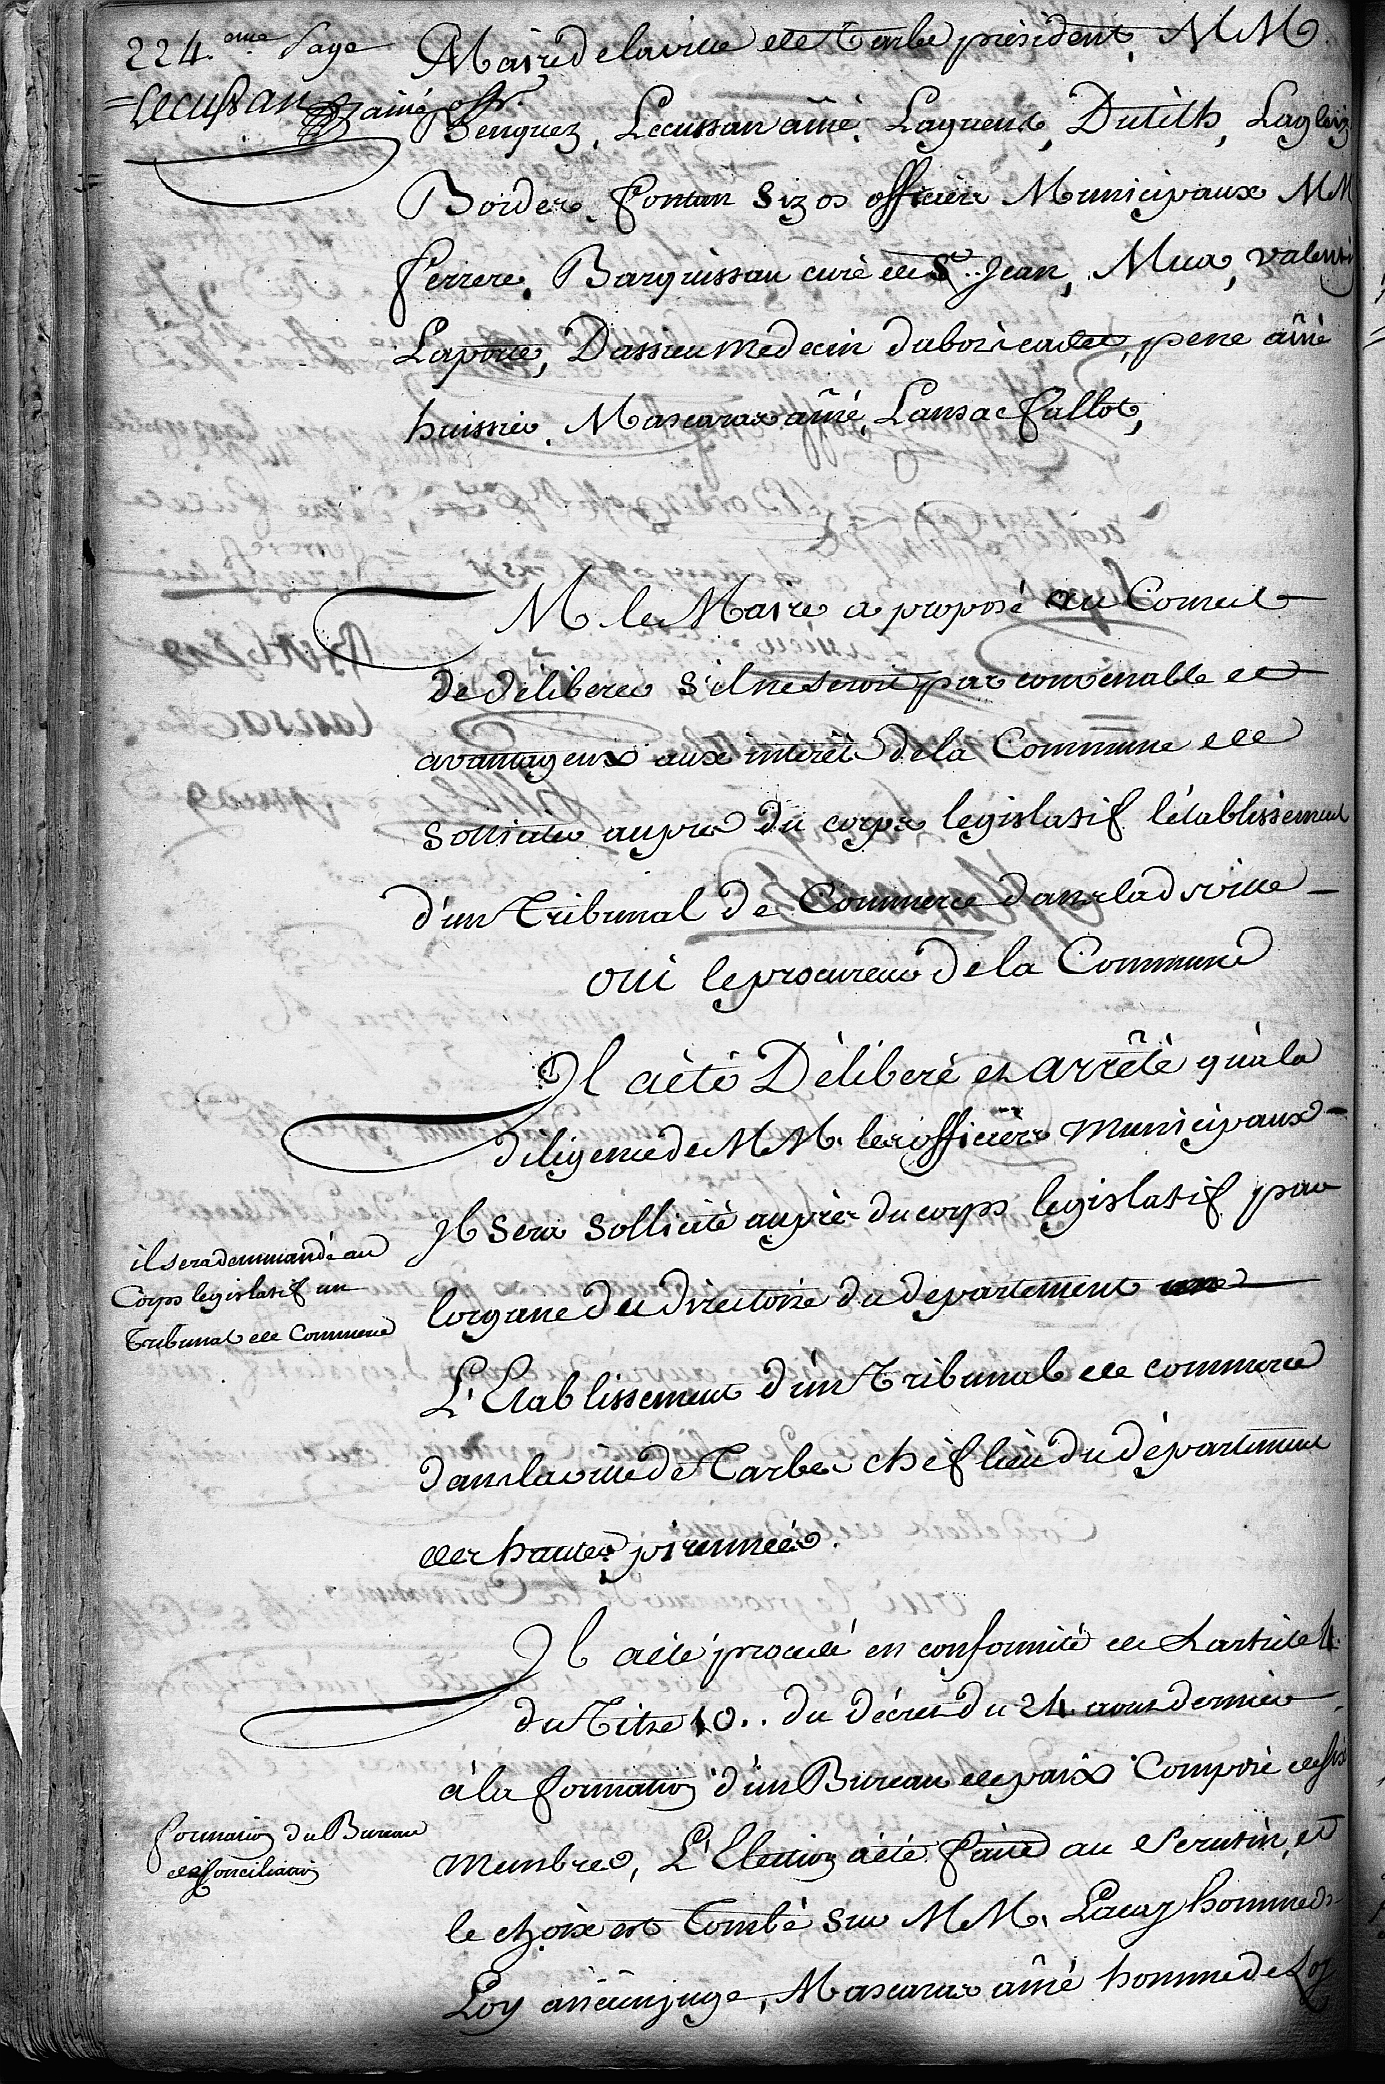 224.eme Page
Lecussan ainé offr.
Maire de la ville de Tarbe président, MM
Benquez, Lecussan ainé, Lagueux, Dutilh, Lagleiz
Bordere, fontan Sizos officiers Municipaux MM
ferrere, Barquissau curé de St. Jean, Mua, valenti
Laporte, Dassieu medecin dubois cadet, pene ainé
huissier, Mascaras ainé, Lansac fallot,
M. le Maire a proposé au Conseil
de délibérer S'il ne seroit pas convenable et
avantageux aux intérêts de la Commune de
Solliciter auprès du corps legislatif l'établissement
d'un Tribunal de Commerce dans lad ville
oui le procureur de la Commune
Il a été Déliberé et arrêté qu'a la
diligence de MM. les officiers Municipaux
Il sera Sollicité auprès du corps legislatif par
l'organe du directoire du departement
L'Etablissement d'un Tribunal de commerce
dans la ville de Tarbes chef lieu du département
des hautes pirennées.
il sera demmandé au
Corps legislatif un
Tribunal de Commerce
Il a été procedé en conformité de L'article 4
du Titre 10.. du décret du 24 aout dernier
à la formation d'un Bureau de paix Composé de six
membres, L'Election a été faite au Scrutin, et
le choix est Tombé Sur MM. Lacay homme de
Loy ancien juge, Mascaras ainé homme de Loy
formation du Bureau
de Conciliation